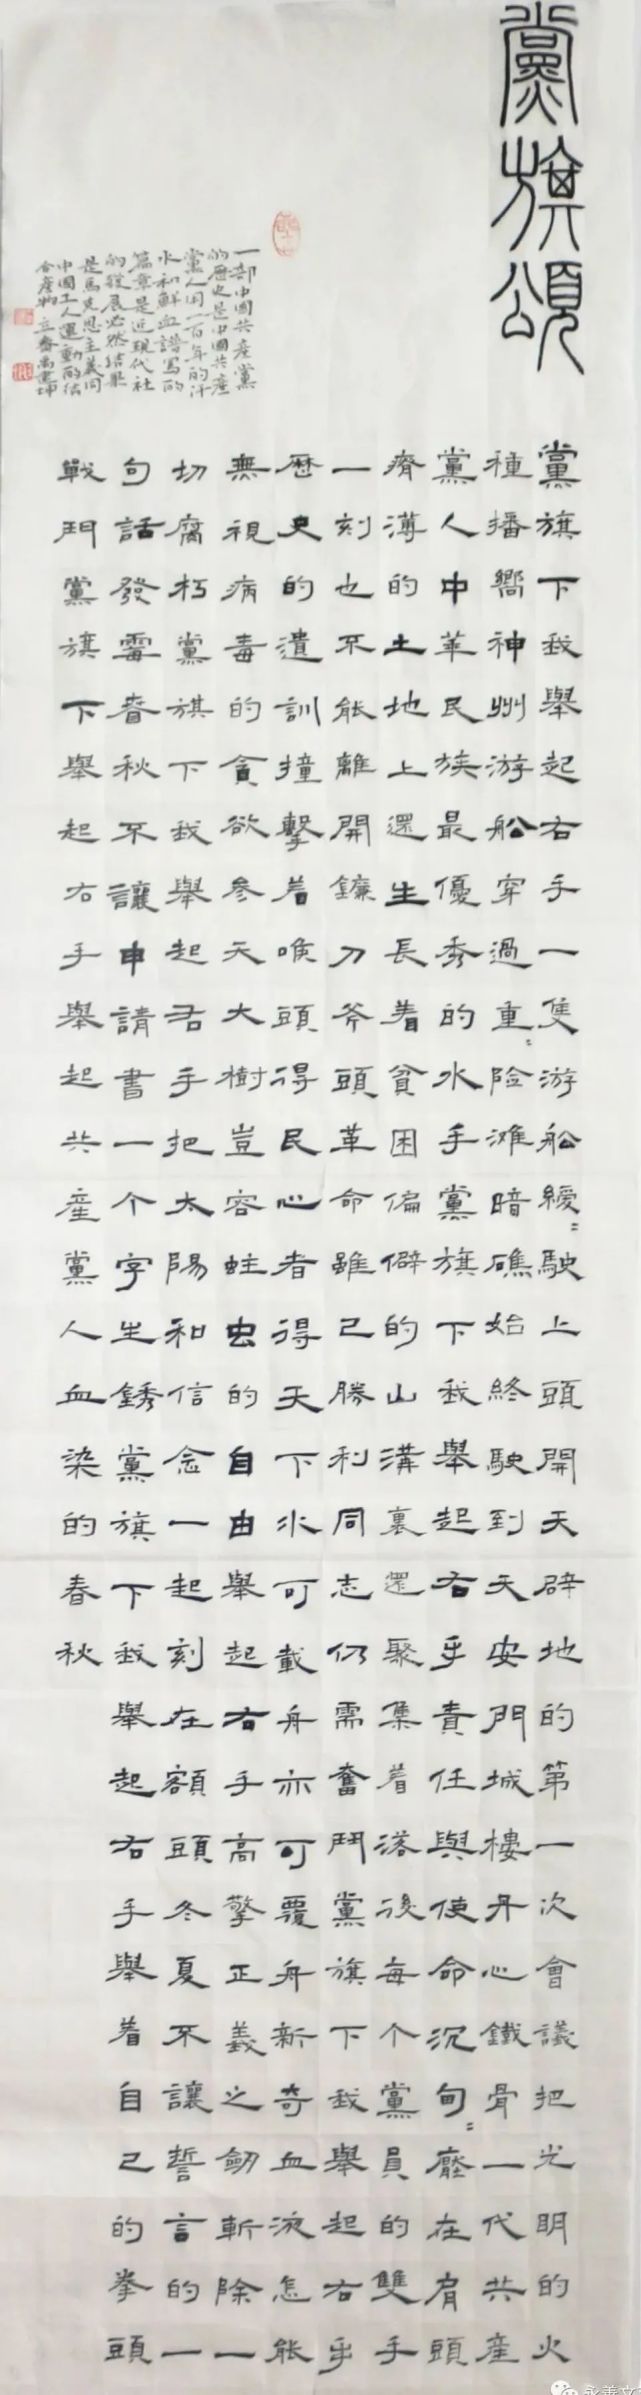 黨旗頌
黨旗下我舉起右手一隻游船緩〻駛上頭開天辟地的第一次會議把光明的火
種播嚮神州游船穿過重〻险滩暗礁始終駛到天安門城樓丹心鐵骨一代共産
黨人中華民族最優秀的水手黨旗下我舉起右手責任與使命沉甸〻壓在肩頭
瘠薄的土地上還生長着貧困偏僻的山溝裏還聚集着落後每个黨員的雙手
一刻也不能離開鐮刀斧頭革命雖已勝利同志仍需奮鬥黨旗下我舉起右手
歷史的遺訓撞擊着喉頭得民心者得天下水可載舟亦可覆舟新奇血液怎能
無視病毒的貪欲參天大樹豈容蛀虫的自由舉起右手高擎正義之劍斬除一
切腐朽黨旗下我舉起右手把太陽和信念一起刻在額頭冬夏不讓誓言的一
句話發霉春秋不讓申請書一个字生銹黨旗下我舉起右手舉着自己的拳頭
戰鬥黨旗下舉起右手舉起共産黨人血染的春秋
一部中國共産黨
的歷史是中國共産
黨人用一百年的汗
水和鮮血譜寫的
篇章是近現代社
的發展必然結果
是馬克思主義同
中國工人運動的結
合産物
永善文